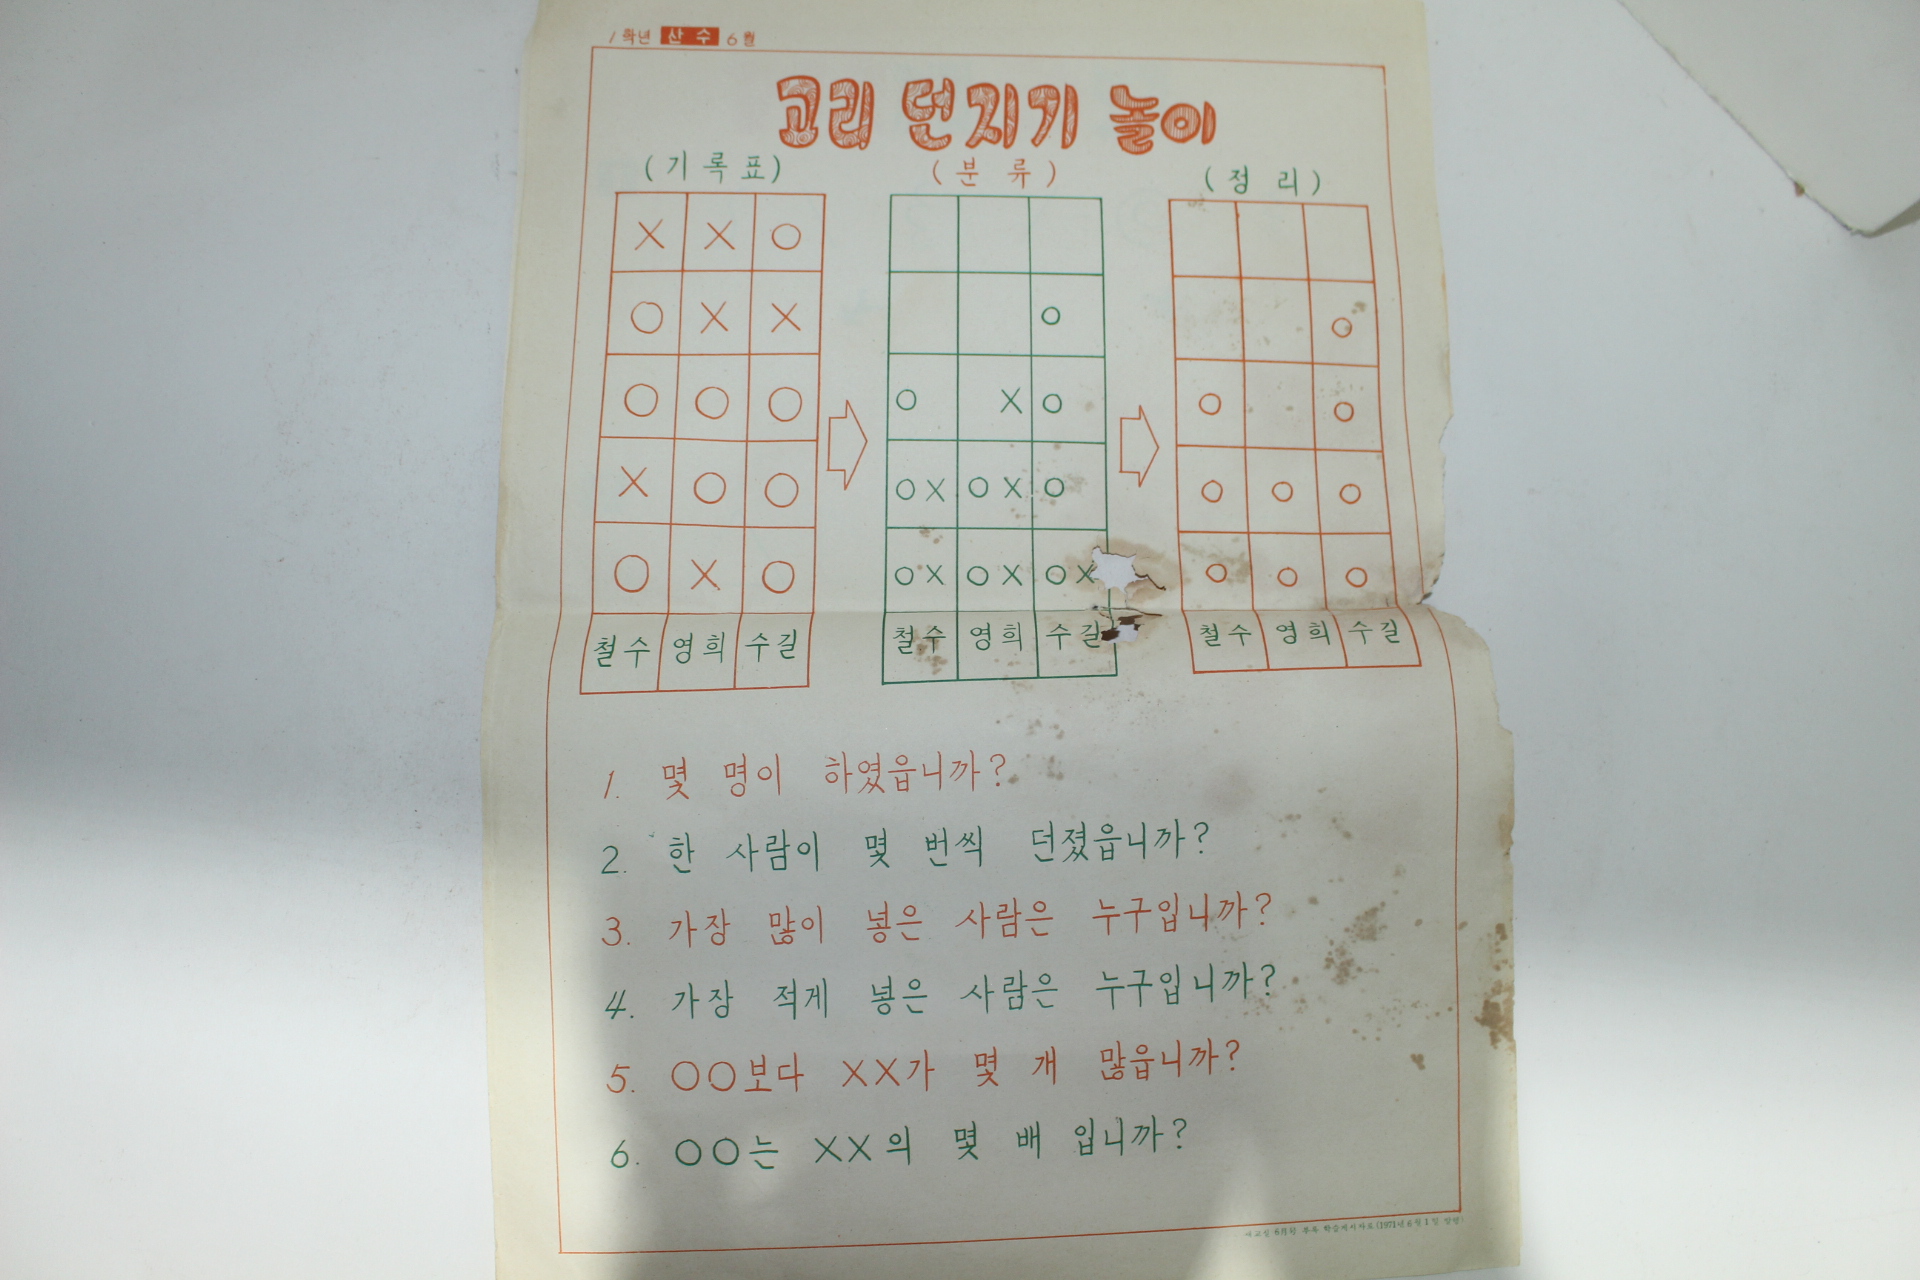 1학년 산수 6월
고리 던지기 놀이
(기록표) (분류) (정리)
X X O
O X X O O
O O O O X O O O
X O O O X O X O O O O
O X O O X O X O X O O O
철수 영희 수길 철수 영희 수길 철수 영희 수길
1. 몇 명이 하였읍니까?
2. 한 사람이 몇 번씩 던졌읍니까?
3. 가장 많이 넣은 사람은 누구입니까?
4. 가장 적게 넣은 사람은 누구입니까?
5. ○○보다 XX가 몇 개 많읍니까?
6. ○○는 XX의 몇 배 입니까?
6월호 부록 학습게시자료(1971년 6월 1일 발행)